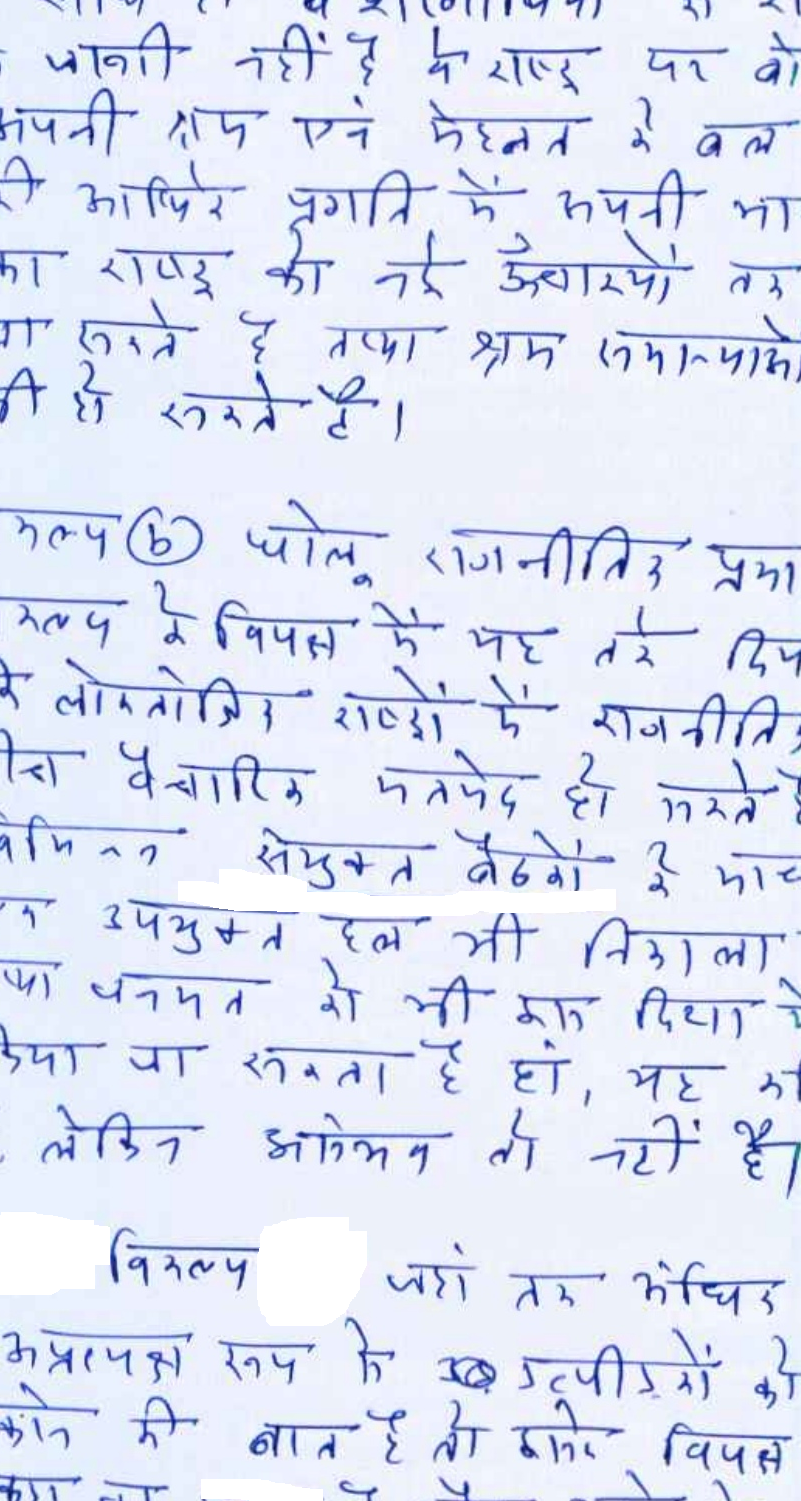 जाती नहीं है वे राष्ट्र पर बो
अपनी श्रम एवं मेहनत के बल
की आर्थिक प्रगति में अपनी भा
का राष्ट्र को नई ऊँचाइयों तक
जा सकते हैं तथा श्रम
ही हो सकते हैं।
कल्प (b) घरेलू राजनीतिक प्रभा
कल्प के विपक्ष में यह तर्क दिया
के लोकतांत्रिक राष्ट्रों में राजनीतिक
बीच वैचारिक मतभेद हो सकते है
विभिन्न संयुक्त बैठकों के माध
एक उपयुक्त हल भी निकाला
तथा जनमत को भी एक दिशा मे
किया जा सकता है हां, यह क
लेकिन असंभव तो नहीं है।
विकल्प जहां तक
अप्रत्यक्ष रूप से उत्पीड़कों को
करने की बात है तो इसके विपक्ष